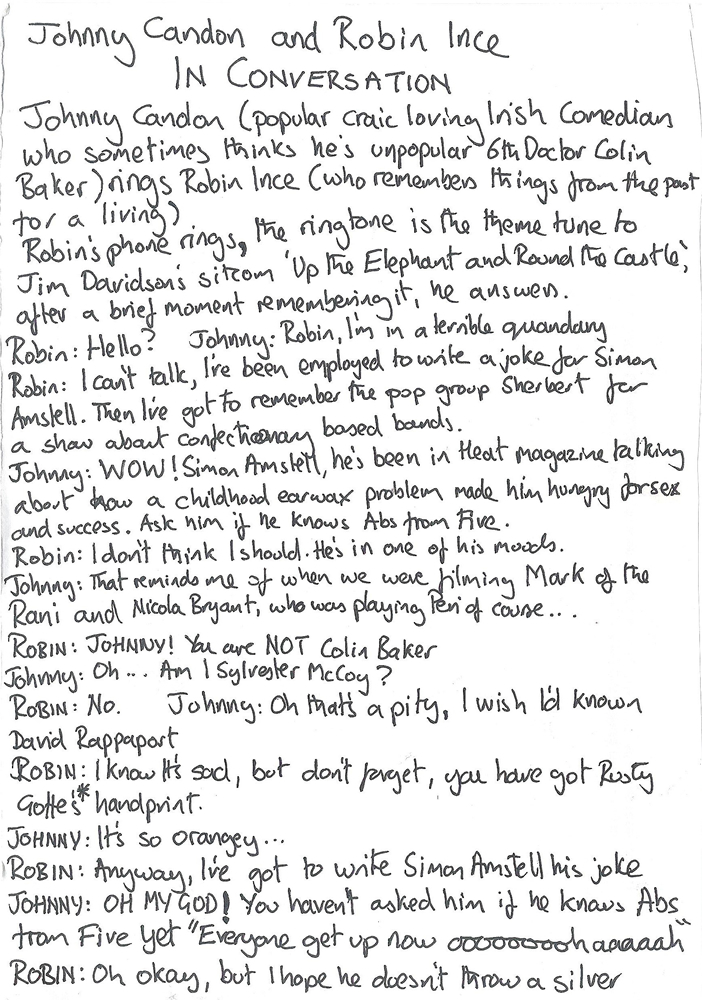 Johnny Candon and Robin Ince
IN CONVERSATION
Johnny Candon (popular craic loving Irish Comedian
who sometimes thinks he's unpopular 6th Doctor Colin
Baker) rings Robin Ince (who remembers things from the past
for a living)
Robin's phone rings, the ringtone is the theme tune to
Jim Davidson's sitcom 'Up the Elephant and Round the Castle',
after a brief moment remembering it, he answers.
Robin: Hello? Johnny: Robin, I'm in a terrible quandary
Robin: I can't talk, I've been employed to write a joke for Simon
Amstell. Then I've got to remember the pop group Sherbert for
a show about confectionary based bands.
Johnny: WOW! Simon Amstell, he's been in Heat magazine talking
about how a childhood earwax problem made him hungry for sex
and success. Ask him if he knows Abs from Five.
Robin: I don't think I should. He's in one of his moods.
Johnny: That reminds me of when we were filming Mark of the
Rani and Nicola Bryant, who was playing Peri of course...
ROBIN: JOHNNY! You are NOT Colin Baker
Johnny: Oh... Am I Sylvester McCoy?
ROBIN: No. Johnny: Oh that's a pity, I wish I'd known
David Rappaport
ROBIN: I know It's sad, but don't forget, you have got Rusty
Goffe's* handprint.
JOHNNY: It's so orangey...
ROBIN: Anyway, I've got to write Simon Amstell his joke
JOHNNY: OH MY GOD! You haven't asked him if he knows Abs
from Five yet "Everyone get up now ooooooooohaaaaah"
ROBIN: Oh okay, but I hope he doesn't throw a silver